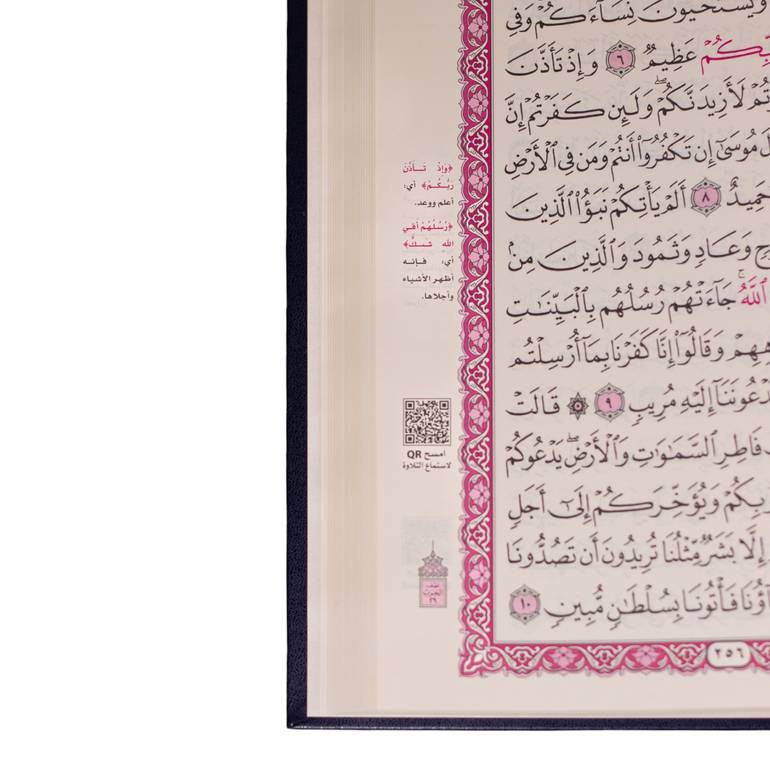 وَيَسْتَحْيُونَ نِسَآءَكُمْ وَفِى
عَظِيمٌ ٦ وَإِذْ تَأَذَّنَ
لَأَزِيدَنَّكُمْ وَلَئِن كَفَرْتُمْ إِنَّ
مُوسَىٰٓ إِن تَكْفُرُوٓا۟ أَنتُمْ وَمَن فِى ٱلْأَرْضِ
حَمِيدٌ ٨ أَلَمْ يَأْتِكُمْ نَبَؤُا۟ ٱلَّذِينَ
وَعَادٍ وَثَمُودَ وَٱلَّذِينَ مِنۢ
ٱللَّهُ جَآءَتْهُمْ رُسُلُهُم بِٱلْبَيِّنَـٰتِ
وَقَالُوٓا۟ إِنَّا كَفَرْنَا بِمَآ أُرْسِلْتُم
إِلَيْهِ مُرِيبٍ ٩ قَالَتْ
فَاطِرِ ٱلسَّمَـٰوَٰتِ وَٱلْأَرْضِ يَدْعُوكُمْ
وَيُؤَخِّرَكُمْ إِلَىٰٓ أَجَلٍ
إِلَّا بَشَرٌ مِّثْلُنَا تُرِيدُونَ أَن تَصُدُّونَا
فَأْتُونَا بِسُلْطَـٰنٍ مُّبِينٍ ١٠
٢٥٦
﴿وَإِذْ تَأَذَّنَ
رَبُّكُمْ﴾ أي:
أعلم ووعد.
﴿رُسُلُهُمْ أَفِي
اللَّهِ شَكٌّ﴾
أي، فإنه
أظهر الأشياء
وأجلاها.
امسح QR
لاستماع التلاوة
نصف
الحزب
٢٦